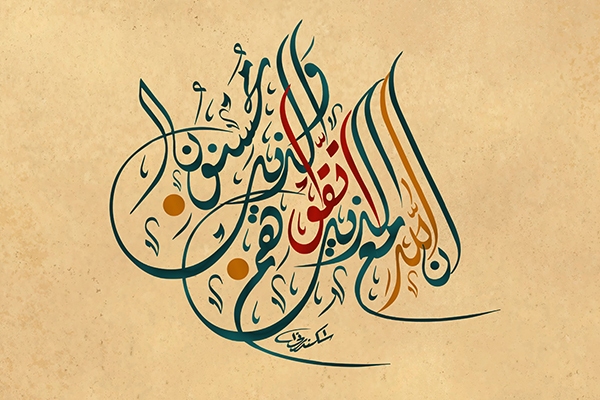 ان الله مع الذين اتقوا والذين هم محسنون